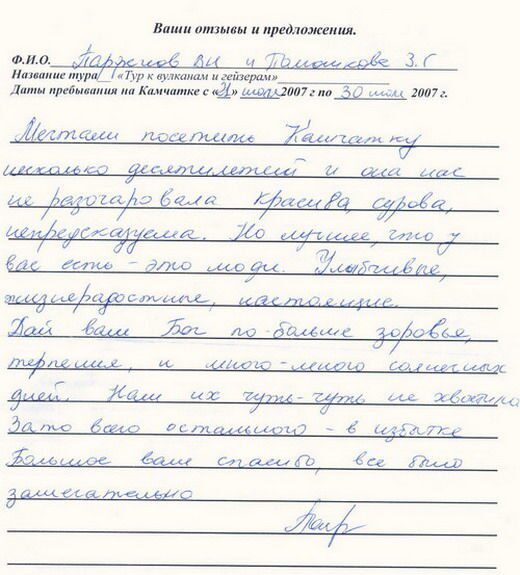 Ваши отзывы и предложения.
Ф.И.О. Паржнов ВН и Помошкова З.Г
Название тура «Тур к вулканам и гейзерам»
Даты пребывания на Камчатке с «21» июля 2007 г по 30 июля 2007 г.
Мечтали посетить Камчатку
несколько десятилетий и она нас
не разочаровала красива, сурова,
непредсказуема. Но лучшее, что у
вас есть - это люди. Улыбчивые,
жизнерадостные, настоящие.
Дай вам Бог по-больше здоровья,
терпения, и много-много солнечных
дней. Нам их чуть-чуть не хватило
Зато всего остального - в избытке
Большое вам спасибо, все было
замечательно